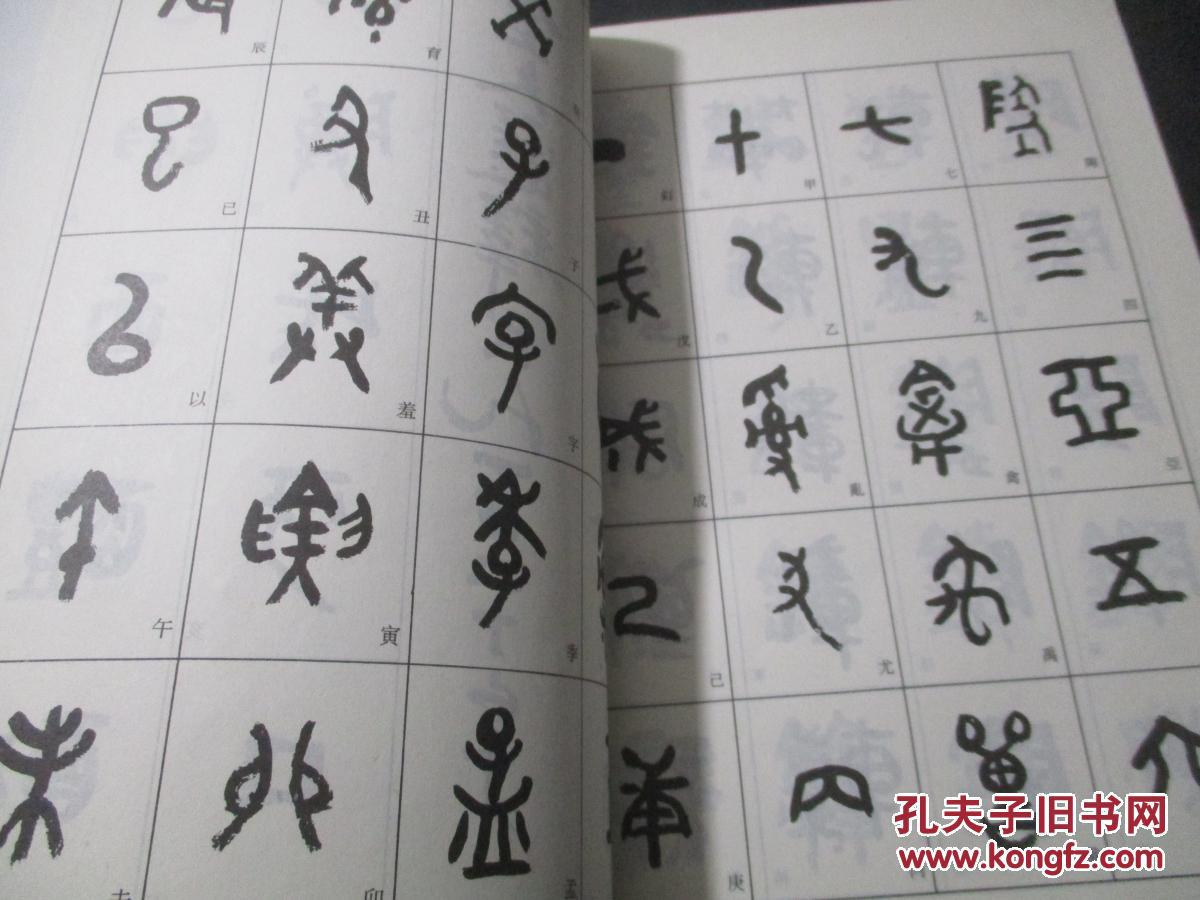 四
亞
五
七
九
禽
禹
甲
乙
亂
尤
戊
成
己
庚
子
字
季
孟
育
丑
羞
寅
卯
辰
巳
以
午
未
孔夫子旧书网
www.kongfz.com